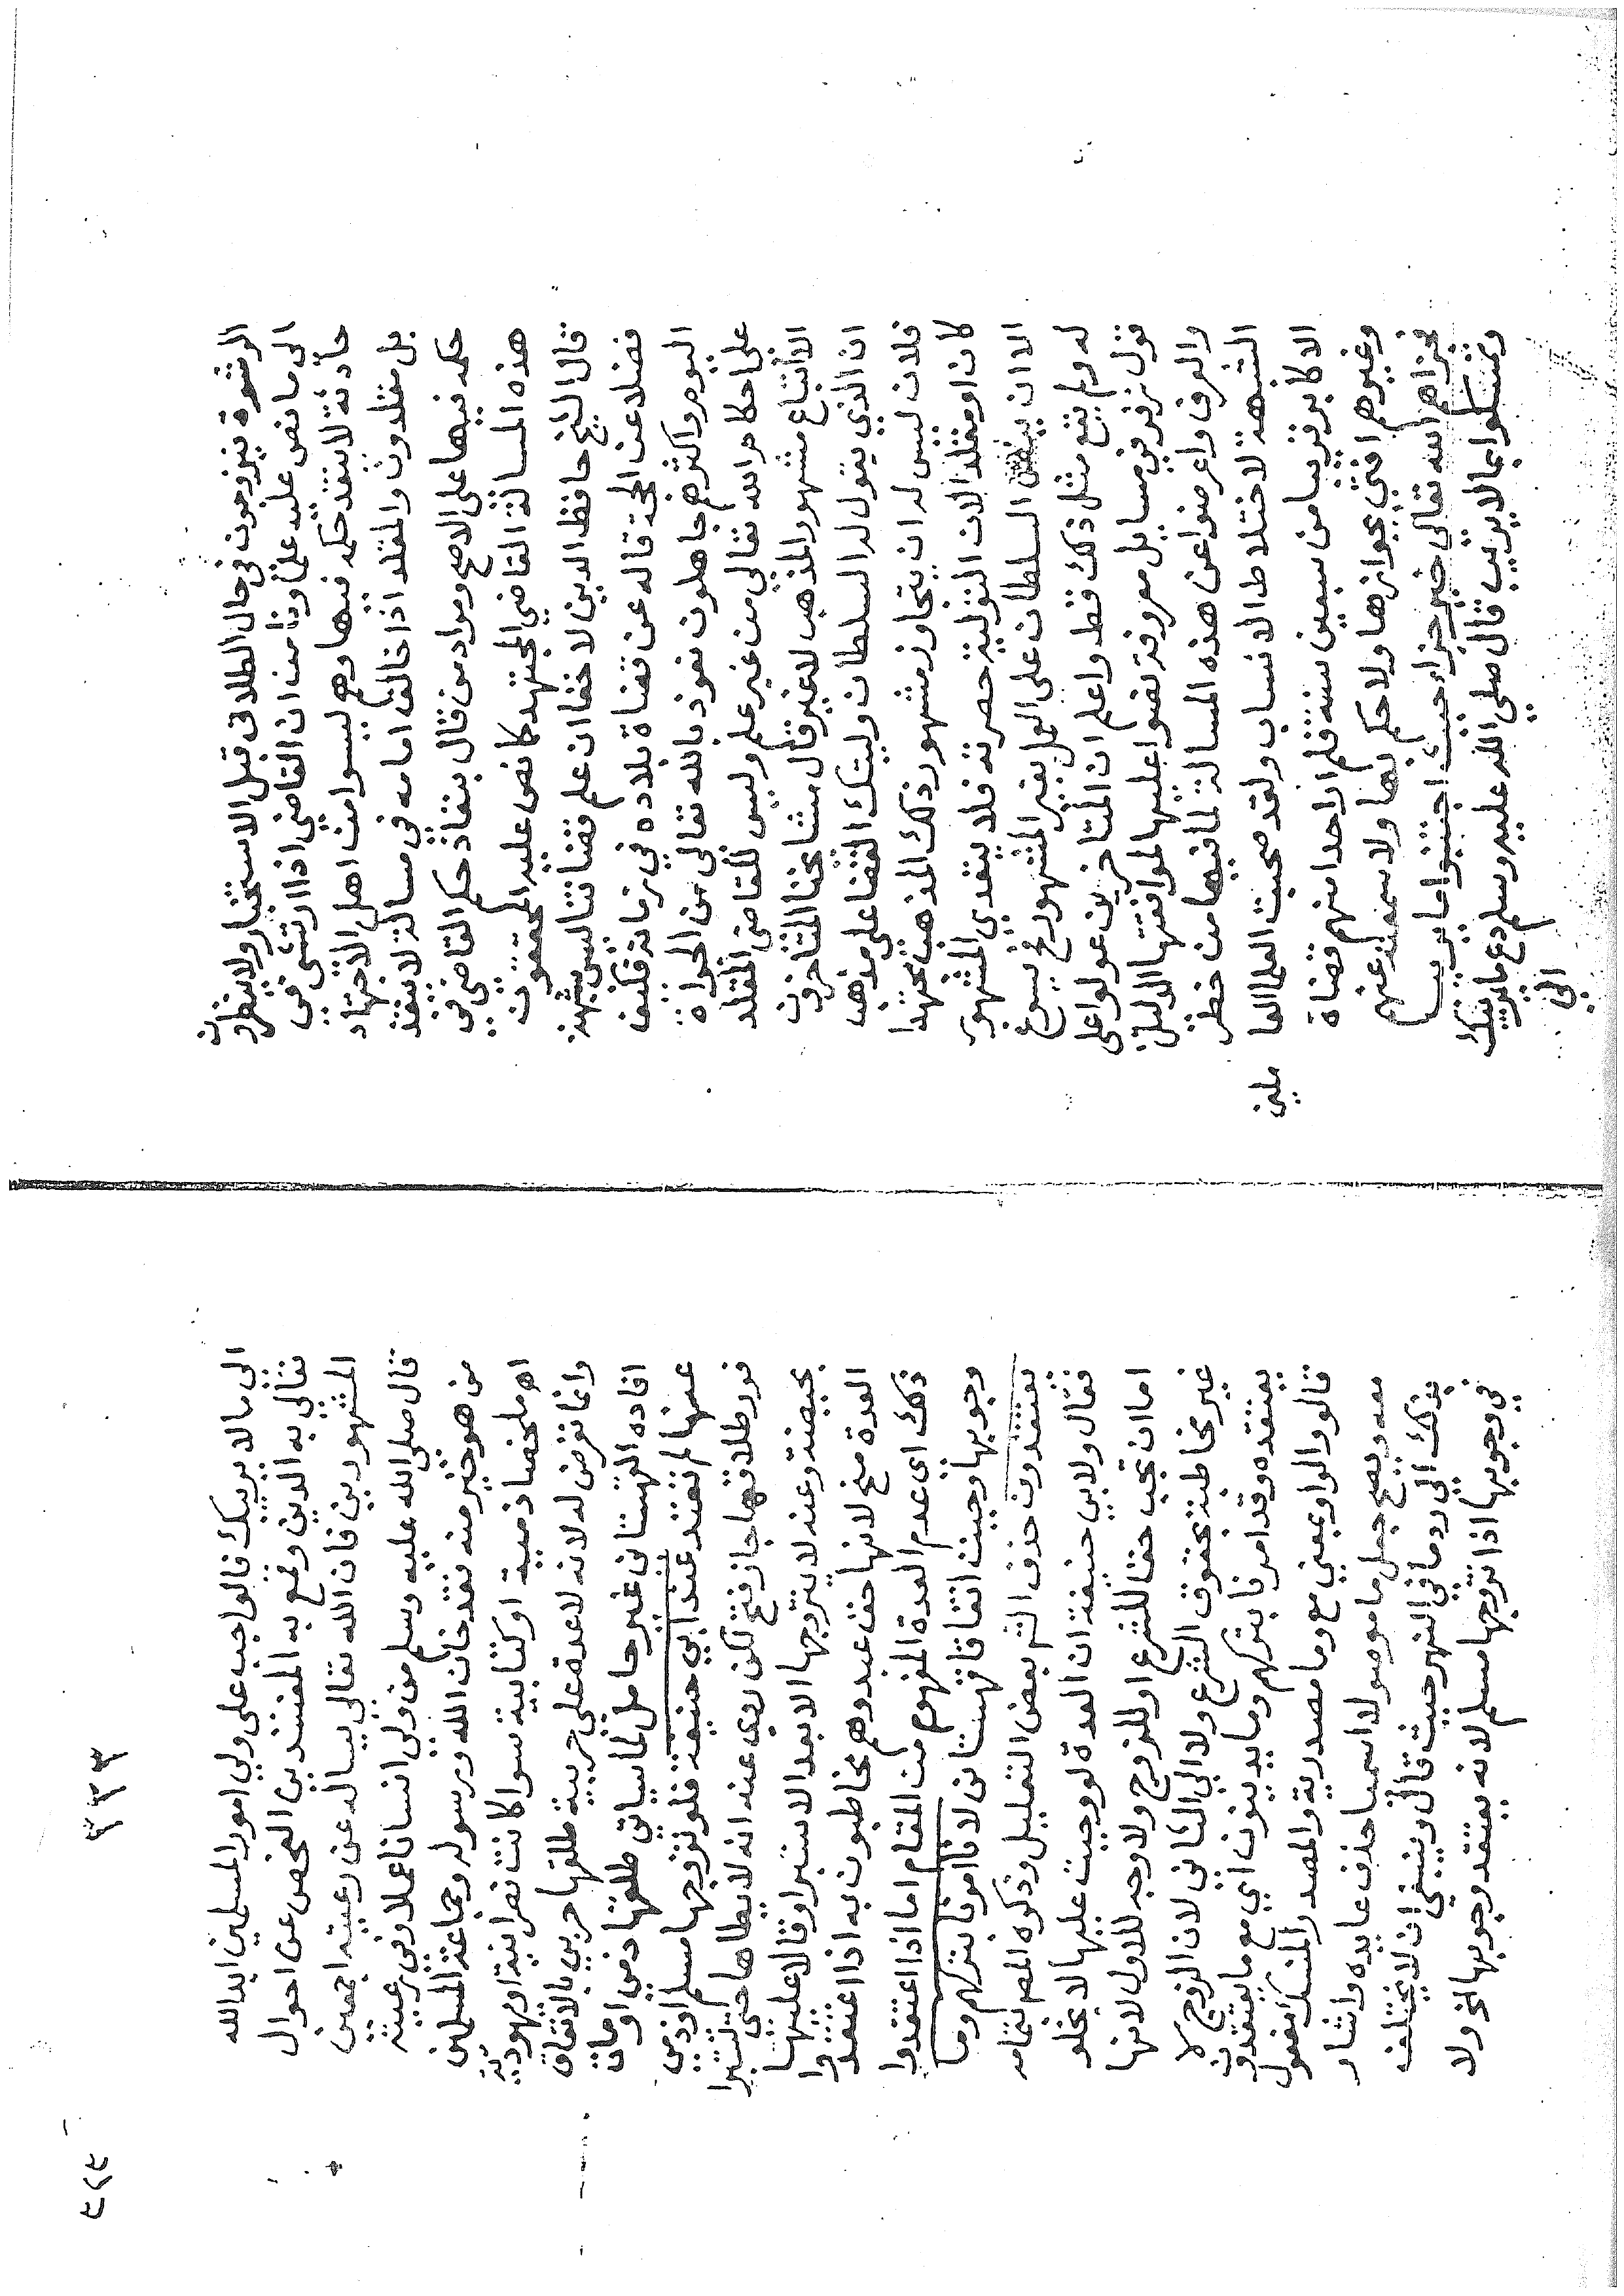 الرشوة فيزوجون في حال الطلاق قبل الاستخبار ولا ينظرون
الى ما نص عليه علماونا من ان القاضي اذا ارتشى في
حادثة لا ينفذ حكمه فيها وهم ليسوا من اهل الاجتهاد
بل مقلدون والمقلد اذا خالف امامه في مسالة لا ينفذ
حكمه فيها على الاصح ومراد من قال بنفاذ حكم القاضي في
هذه المسالة القاضي المجتهد كما نص عليه المحققون
قال الشيخ حافظ الدين لا خفا ان علم قضاتنا ليس بشبهة
فضلا عن الحجة قاله عن قضاة بلاده في زمانه فكيف
اليوم واكثرهم جاهلون نعوذ بالله تعالى من الجراة
على احكام الله تعالى من غير علم وليس للقاضي المقلد
الا اتباع مشهور المذهب لا غير قال مشايخنا المتاخرون
ان الذي يقول له السلطان وليتك القضا على مذهب
فلان ليس له ان يتجاوز مشهور ذلك المذهب مجتهدا
كان او مقلدا لان التولية حصرته فلا ينفد في المشهور
الا ان ينص السلطان على العمل بغير المشهور فيسوغ
له ولم يقع مثل ذلك قط واعلم ان المتاخرين عولوا على
قول زفر في مسايل معروفة نصوا عليها لموافقتها الدليل
والعرف واعرضوا عن هذه المسالة لما فيها من خطر
الشبهة لاختلاط الانساب ولقد صحبت العلما العاملين
الاكابر قريبا من سبعين سنة فلم ار احدا منهم قضاة
وغيرهم افتى بجوازها ولا حكم بها ولا سمعته عنهم
فجزاهم الله تعالى خير جزاء حيث اجتنبوا ما يريب
وتمسكوا بما لا يريب قال صلى الله عليه وسلم دع ما يريبك
الى
٣٣٣
الى ما لا يريبك فالواجب على ولي امور المسلمين ايد الله
تعالى به الدين وقمع به المفسدين الفحص عن احوال
المشهورين فان الله تعالى يساله عن رعيته اجمعين
قال صلى الله عليه وسلم من ولى انسانا عملا وفي رعيته
من هو خير منه فقد خان الله ورسوله وجماعة المسلمين
اه ملخصا ذمية او كتابية سوا كانت نصرانية او يهودية
وانما تفرض له لانه لا عدة على حربية طلقها حربي بالاتفاق
افاده القهستاني غير حامل لما سياتي طلقها ذمي او مات
عنها لم تعتد عند ابي حنيفة فلو تزوجها مسلم او ذمي
فور طلاقها جاز فتح لكن روي عنه انه لا يطاها حتى تستبرا
بحيضة وعنه لا يتزوجها الا بعد الاستبرا وقالا عليها
العدة منح لانها حق عبد وهم مخاطبون به اذا اعتقدوا
ذلك اي عدم العدة المفهوم من المقام اما اذا اعتقدوا
وجوبها وجبت اتفاقا قهستاني لانا امرنا بتركهم وما
يعتقدون حذف الشم بعض التعليل وذكره المصم بتمامه
فقال ولابي حنيفة ان العدة لو وجبت عليها لا يخلو
اما ان تجب حقا للشرع او للزوج ولا وجه للاول لانها
غير مخاطبة بحقوق الشرع ولا الى الثاني لان الزوج لا
يعتقده وقد امرنا بتركهم وما يدينون اي مع ما يعتقدون
قالوا والواو بمعنى مع وما مصدرية والمصدر المنسبك مفعول
معه ويصح جعل ما موصولا اسميا حذف عايده واشار
بذلك الى رد ما في النهر حيث قال وينبغي ان لا يختلف
في وجوبها اذا تزوجها مسلم لانه يعتقد وجوبها الخ ولا